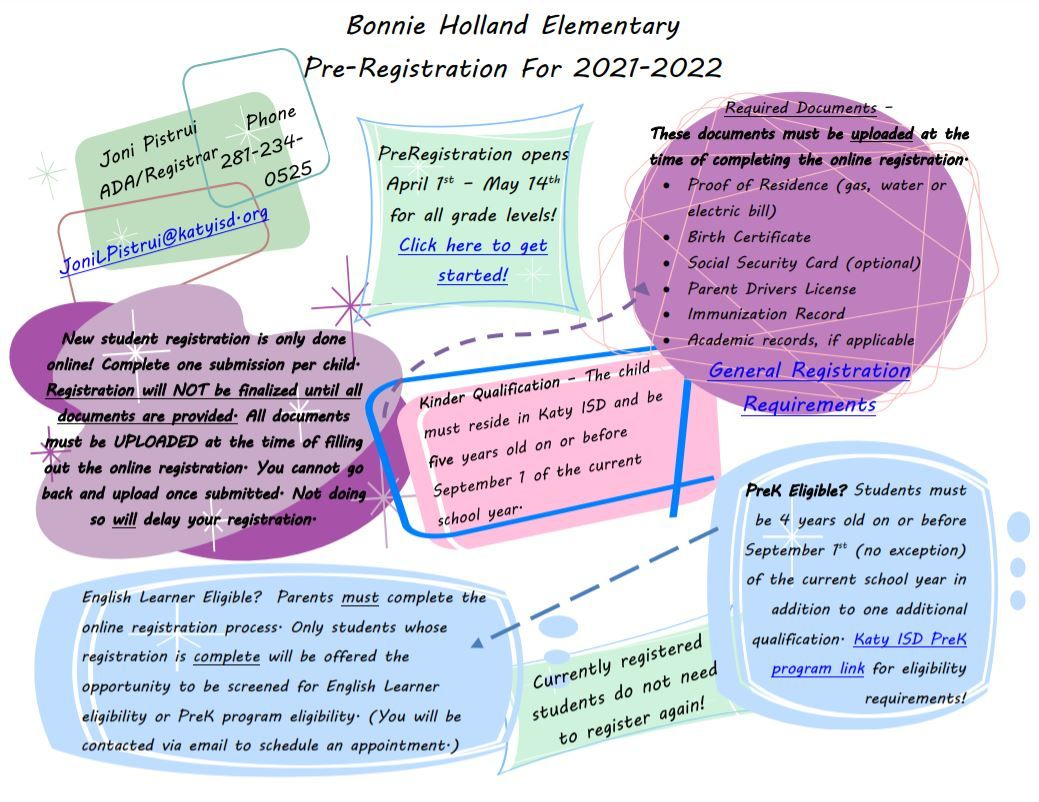 Bonnie Holland Elementary
Pre-Registration For 2021-2022
Joni Pistrui
ADA/Registrar
Phone
281-234-
0525
JoniLPistrui@katyisd.org
PreRegistration opens
April 1st – May 14th
for all grade levels!
Click here to get
started!
Required Documents –
These documents must be uploaded at the
time of completing the online registration.
• Proof of Residence (gas, water or
electric bill)
• Birth Certificate
• Social Security Card (optional)
• Parent Drivers License
• Immunization Record
• Academic records, if applicable
General Registration
Requirements
New student registration is only done
online! Complete one submission per child.
Registration will NOT be finalized until all
documents are provided. All documents
must be UPLOADED at the time of filling
out the online registration. You cannot go
back and upload once submitted. Not doing
so will delay your registration.
Kinder Qualification – The child
must reside in Katy ISD and be
five years old on or before
September 1 of the current
school year.
PreK Eligible? Students must
be 4 years old on or before
September 1st (no exception)
of the current school year in
addition to one additional
qualification. Katy ISD PreK
program link for eligibility
requirements!
English Learner Eligible? Parents must complete the
online registration process. Only students whose
registration is complete will be offered the
opportunity to be screened for English Learner
eligibility or PreK program eligibility. (You will be
contacted via email to schedule an appointment.)
Currently registered
students do not need
to register again!